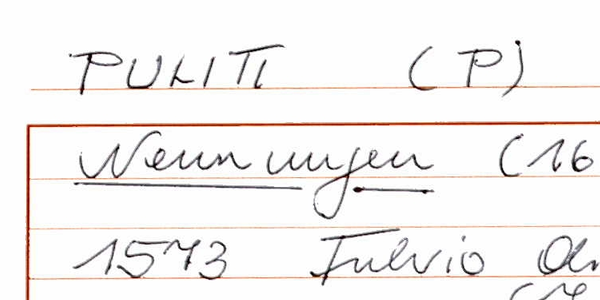 PULITI (P)
Nennungen (16
1573 Fulvio